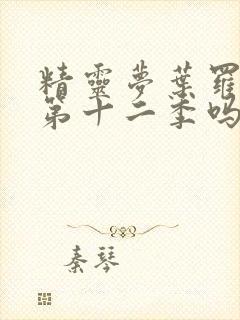 精靈夢葉羅
第十二季吗
秦琴